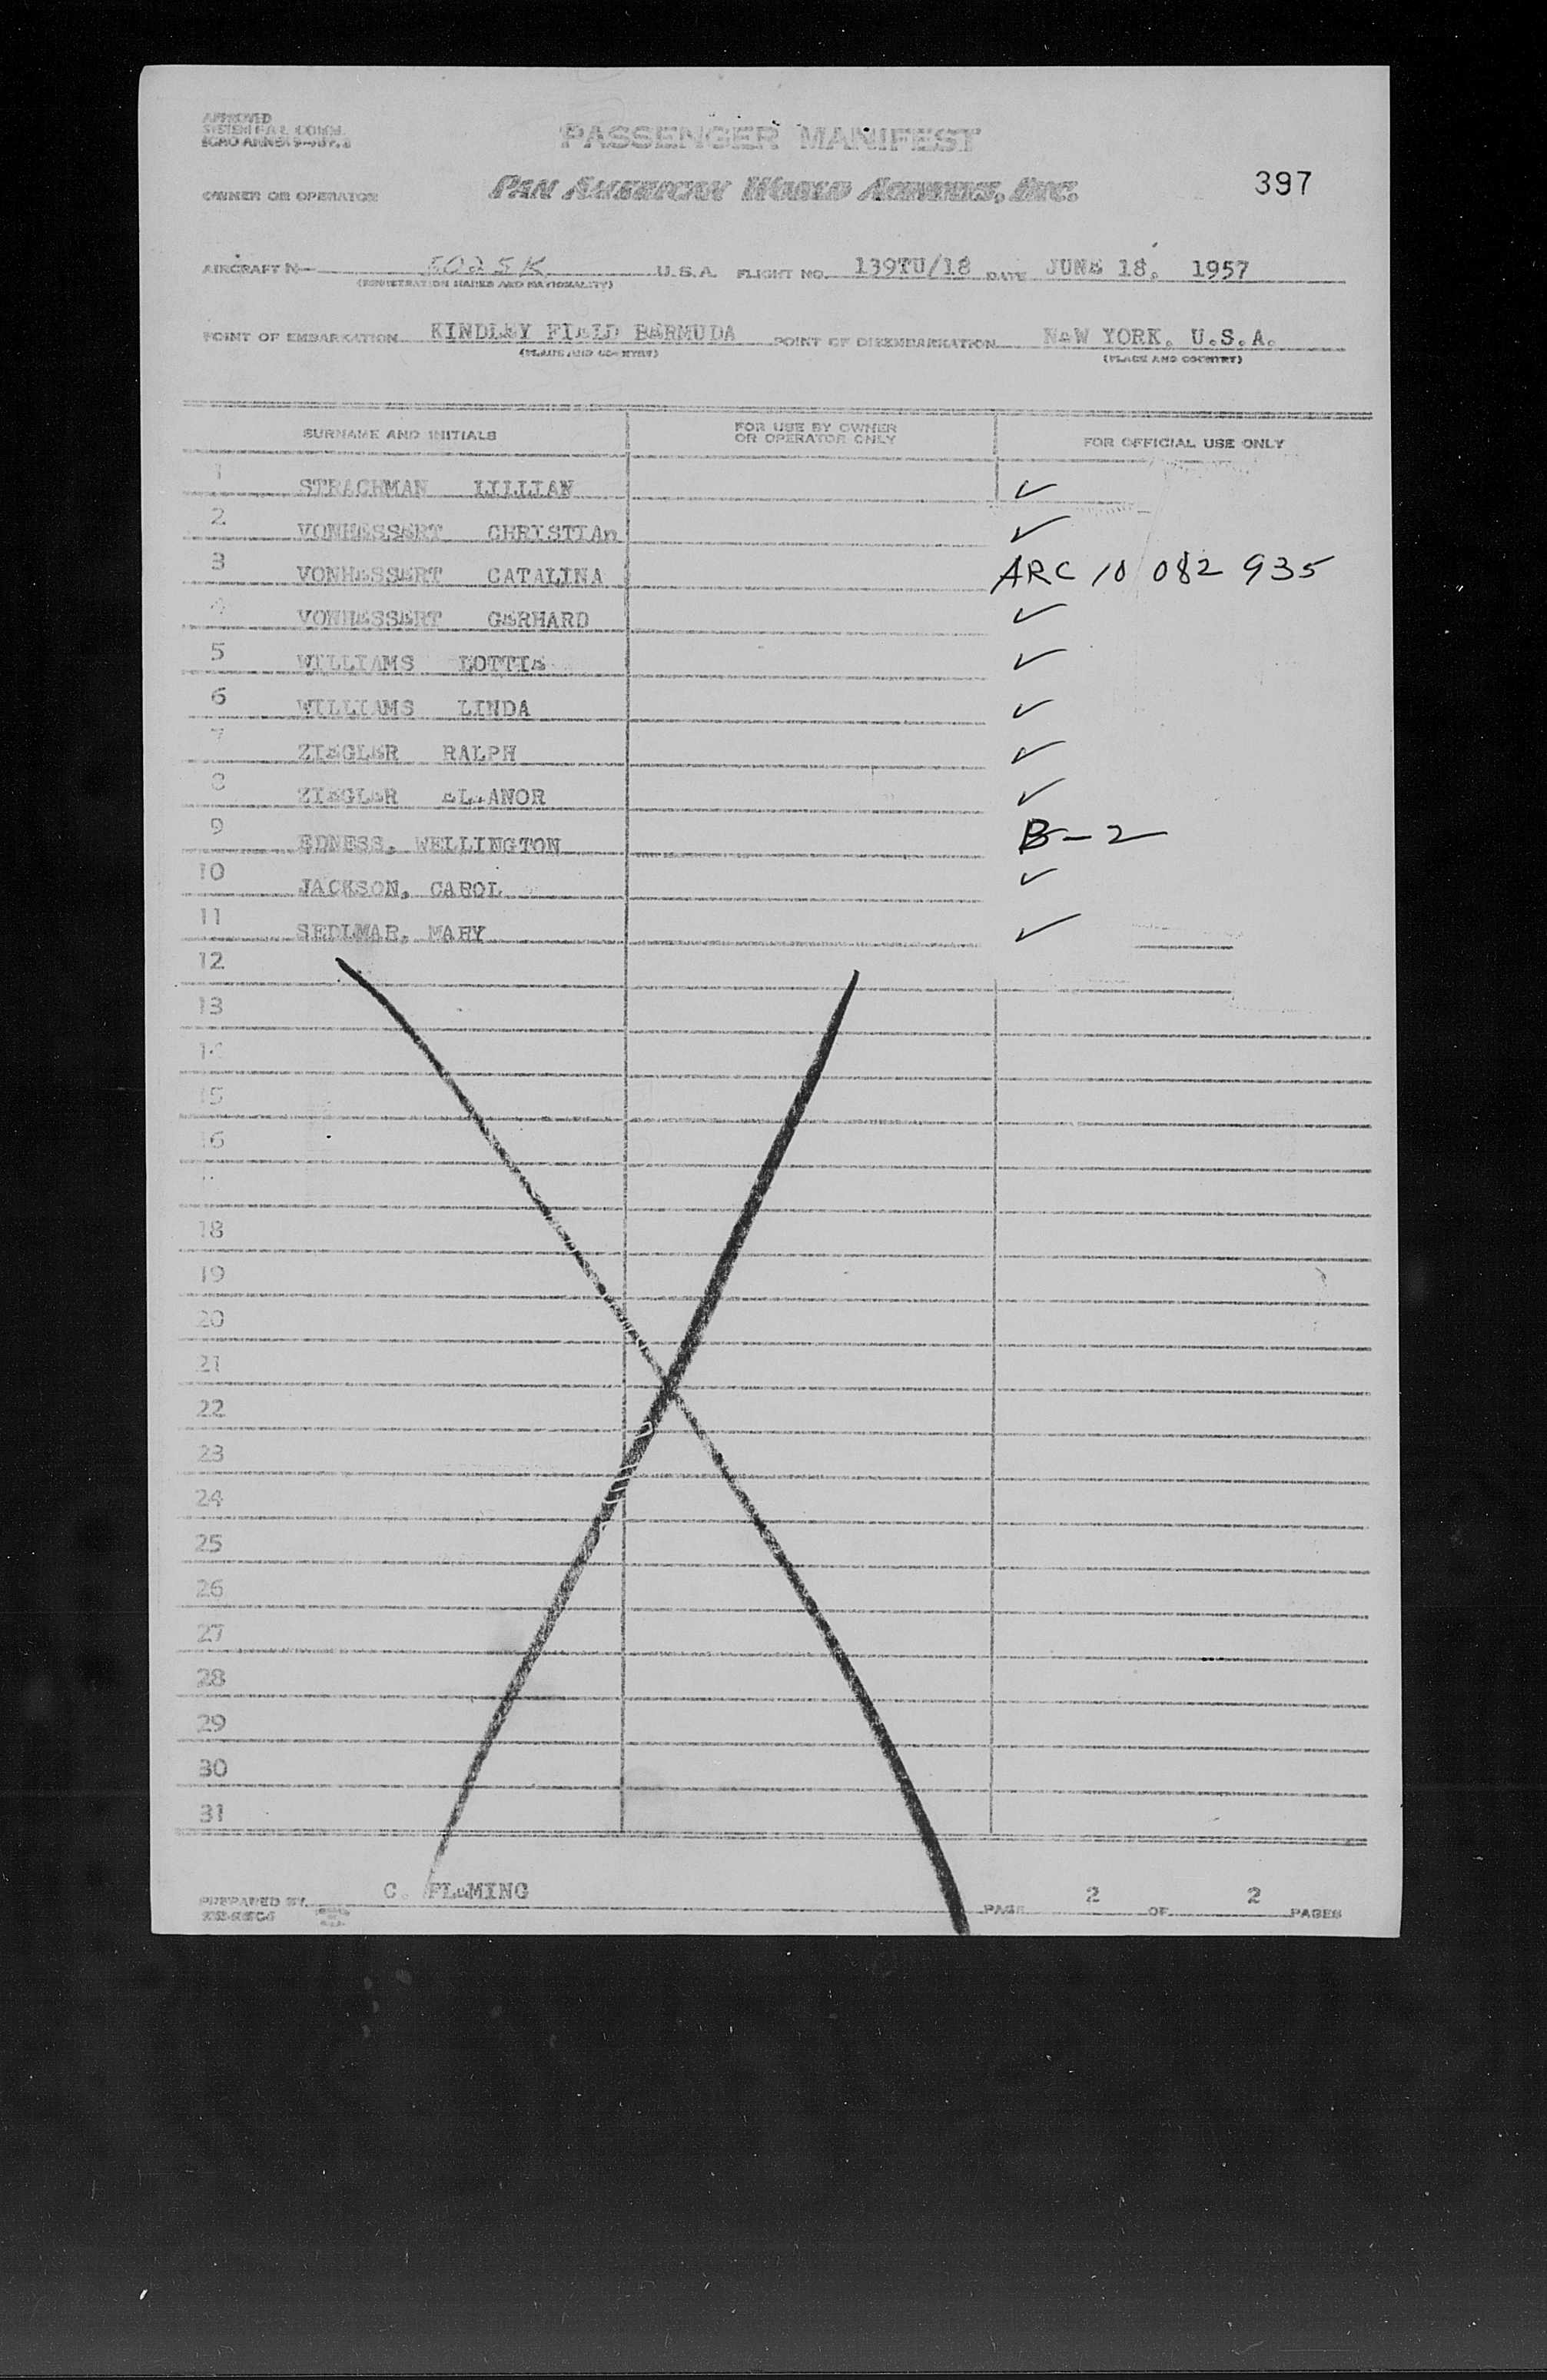 APPROVED
SYSTEM F.A.L. COMM.
ICAO ANNEX 9-APP. 3
PASSENGER MANIFEST
OWNER OR OPERATOR PAN AMERICAN WORLD AIRWAYS, INC. 397
AIRCRAFT N- 5025K U.S.A. FLIGHT NO. 139TU/18 DATE JUNE 18, 1957
(REGISTRATION MARKS AND NATIONALITY)
POINT OF EMBARKATION KINDLEY FIELD BERMUDA POINT OF DISEMBARKATION NEW YORK, U.S.A.
(PLACE AND COUNTRY) (PLACE AND COUNTRY)
SURNAME AND INITIALS FOR USE BY OWNER OR OPERATOR ONLY FOR OFFICIAL USE ONLY
1 STRACHMAN LILLIAN ✓
2 VONHESSERT CHRISTIAn ✓
3 VONHESSERT CATALINA ARC 10 082 935
4 VONHESSERT GERHARD ✓
5 WILLIAMS LOTTIE ✓
6 WILLIAMS LINDA ✓
7 ZIEGLER RALPH ✓
8 ZIEGLER ELEANOR ✓
9 EDNESS, WELLINGTON B-2
10 JACKSON, CAROL ✓
11 SEDLMAR, MARY ✓
12
13
14
15
16
18
19
20
21
22
23
24
25
26
27
28
29
30
31
PREPARED BY C. FLEMING PAGE 2 OF 2 PAGES